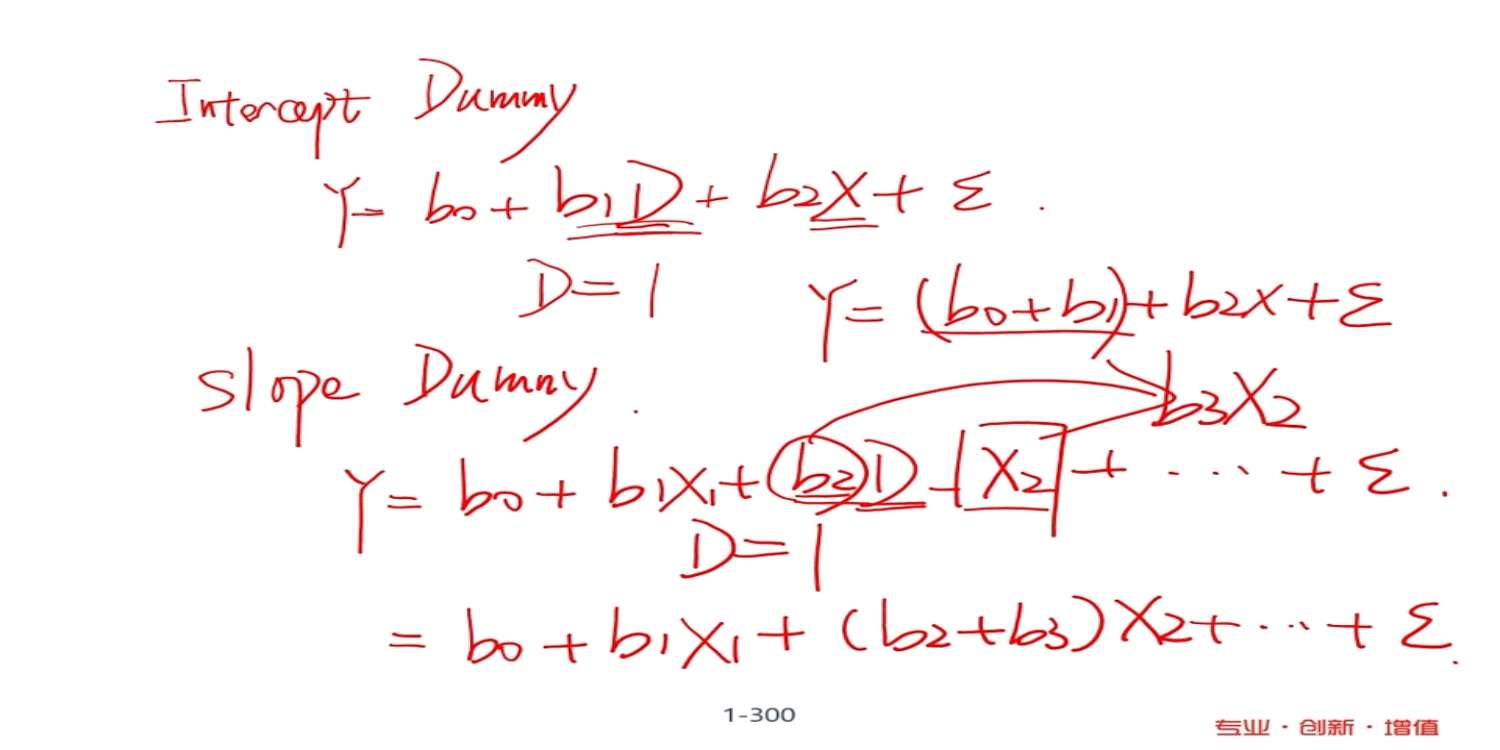 Intercept Dummy
Y = b0 + b1D + b2X + ε .
D = 1
Y = (b0+b1) + b2X + ε
Slope Dummy .
b3X2
Y = b0 + b1X1 + b2D · X2 + ··· + ε .
D = 1
= b0 + b1X1 + (b2+b3)X2 + ··· + ε .
1-300
专业·创新·增值